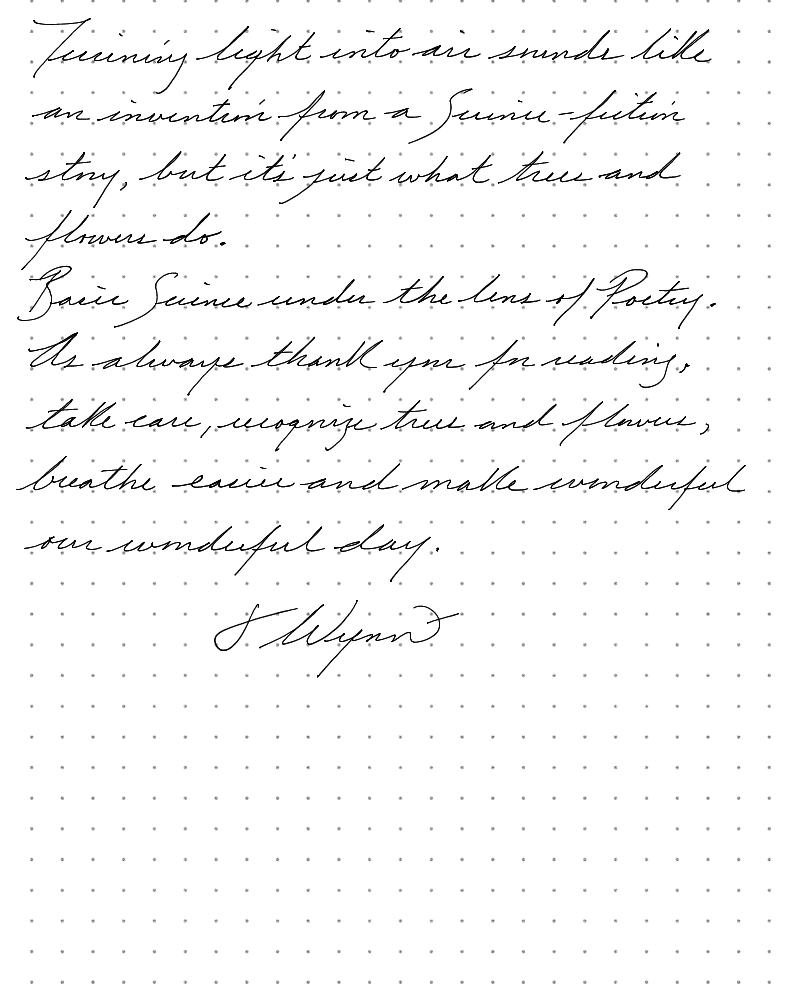 Turning light into air sounds like
an invention from a Science-fiction
story, but it's just what trees and
flowers do.
Basic Science under the lens of Poetry.
As always thank you for reading,
take care, recognize trees and flowers,
breathe easier and make wonderful
our wonderful day.
J Wynn